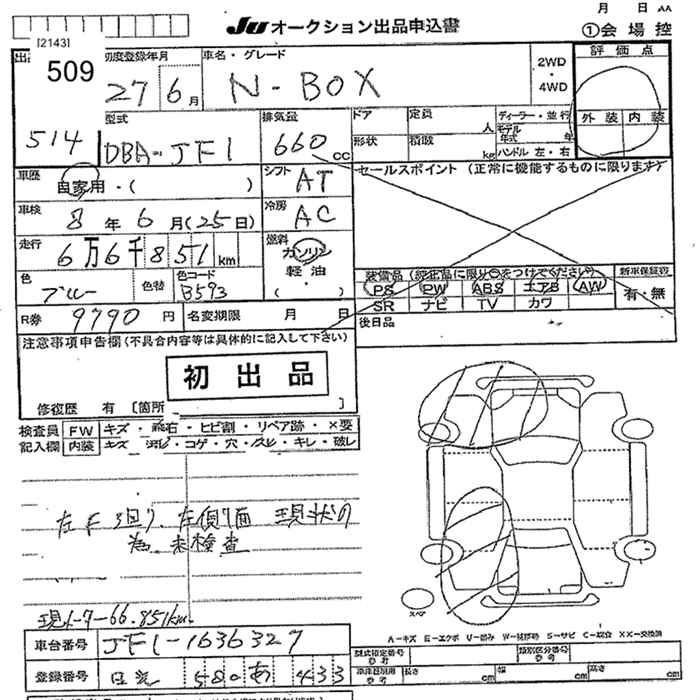 月 日 AA
JU オークション出品申込書
①会場控
[2143]
509
初度登録年月
車名・グレード
2WD
・
4WD
評価点
27 6月
N-BOX
514
型式
DBA-JF1
排気量
660 cc
ドア
定員
人
ディーラー・並行
モデル年式 年
ハンドル 左・右
外装 内装
形状
積載
kg
車歴
自家用・( )
シフト
AT
セールスポイント (正常に機能するものに限ります)
車検
8年6月(25日)
冷房
AC
走行
6万6千851km
燃料
ガソリン
軽油
( )
色
ブルー
色替
色コード
B593
装備品(純正品に限り○をつけてください)
新車保証書
PS PW ABS エアB AW
有・無
SR ナビ TV カワ
R券
9790円
名変期限 月 日
後日品
注意事項申告欄(不具合内容等は具体的に記入して下さい)
初出品
修復歴 有 [箇所 ]
検査員 FW キズ・飛石・ヒビ割・リペア跡・X要
記入欄 内装 キズ・コゲ・穴・スレ・キレ・破レ
左F3回り、左側7面 現状の
為 未検査
現メーター66.851km
車台番号
JF1-1636327
登録番号
580 あ 433
スペア
A-キズ E-エクボ U-凹み W-補修跡 S-サビ C-腐食 XX-交換済
型式指定番号
参考
類別区分番号
参考
長さ cm
幅 cm
高さ cm